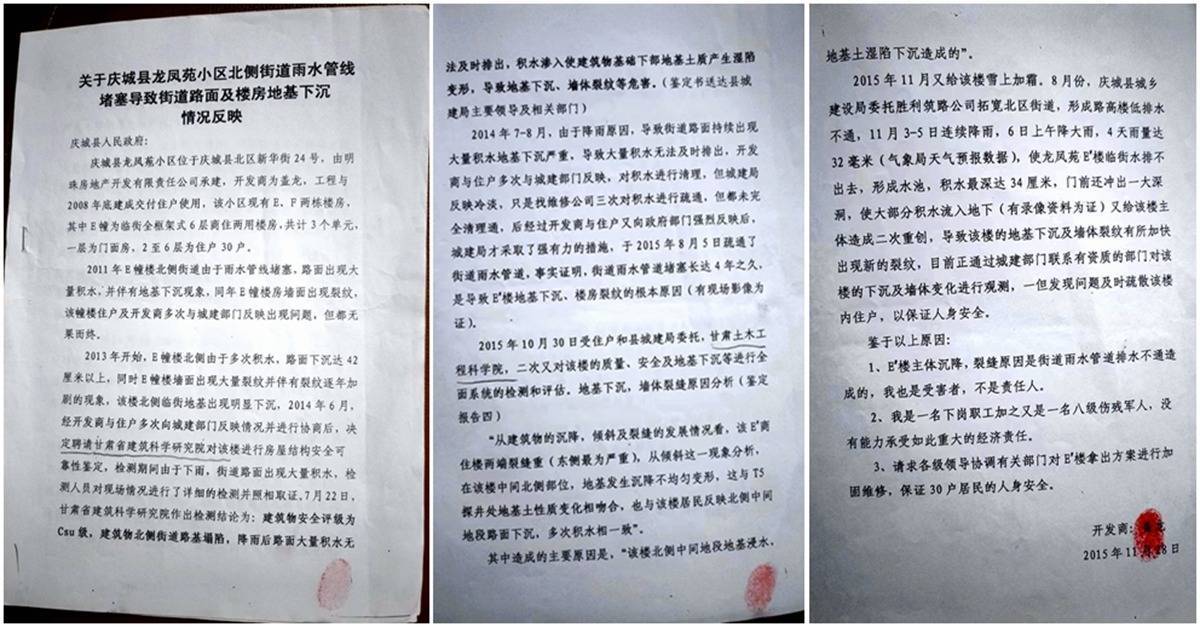 关于庆城县龙凤苑小区北侧街道雨水管线
堵塞导致街道路面及楼房地基下沉
情况反映
庆城县人民政府:
庆城县龙凤苑小区位于庆城县北区新华街24号,由明
珠房地产开发有限责任公司承建,开发商为盖龙,工程与
2008年底建成交付住户使用,该小区现有E、F两栋楼房,
其中E幢为临街全框架式6层商住两用楼房,共计3个单元,
一层为门面房,2至6层为住户30户。
2011年E幢楼北侧街道由于雨水管线堵塞,路面出现大
量积水,并伴有地基下沉现象,同年E幢楼房墙面出现裂纹,
该幢楼住户及开发商多次与城建部门反映出现问题,但都无
果而终。
2013年开始,E幢楼北侧由于多次积水,路面下沉达42
厘米以上,同时E幢楼墙面出现大量裂纹并伴有裂纹逐年加
剧的现象,该楼北侧临街地基出现明显下沉,2014年6月,
经开发商与住户多次向城建部门反映情况并进行协商后,决
定聘请甘肃省建筑科学研究院对该楼进行房屋结构安全可
靠性鉴定,检测期间由于下雨,街道路面出现大量积水,检
测人员对现场情况进行了详细的检测并照相取证。7月22日,
甘肃省建筑科学研究院作出检测结论为:建筑物安全评级为
Csu级,建筑物北侧街道路基塌陷,降雨后路面大量积水无
法及时排出,积水渗入使建筑物基础下部地基土质产生湿陷
变形,导致地基下沉、墙体裂纹等危害。(鉴定书送达县城
建局主要领导及相关部门)
2014年7-8月,由于降雨原因,导致街道路面持续出现
大量积水地基下沉严重,导致大量积水无法及时排出,开发
商与住户多次与城建部门反映,对积水进行清理,但城建局
反映冷淡,只是找维修公司三次对积水进行疏通,但都未完
全清理通,后经过开发商与住户又向政府部门强烈反映后,
城建局才采取了强有力的措施,于2015年8月5日疏通了
街道雨水管道,事实证明,街道雨水管道堵塞长达4年之久,
是导致E#楼地基下沉、楼房裂纹的根本原因(有现场影像为
证)。
2015年10月30日受住户和县城建局委托,甘肃土木工
程科学院,二次又对该楼的质量、安全及地基下沉等进行全
面系统的检测和评估。地基下沉,墙体裂缝原因分析(鉴定
报告四)
“从建筑物的沉降,倾斜及裂缝的发展情况看,该E#商
住楼两端裂缝重(东侧最为严重),从倾斜这一现象分析,
在该楼中间北侧部位,地基发生沉降不均匀变形,这与T5
探井处地基土性质变化相吻合,也与该楼居民反映北侧中间
地段路面下沉,多次积水相一致”。
其中造成的主要原因是,“该楼北侧中间地段地基浸水,
地基土湿陷下沉造成的”。
2015年11月又给该楼雪上加霜。8月份,庆城县城乡
建设局委托胜利筑路公司拓宽北区街道,形成路高楼低排水
不通,11月3-5日连续降雨,6日上午降大雨,4天雨量达
32毫米(气象局天气预报数据),使龙凤苑E#楼临街水排不
出去,形成水池,积水最深达34厘米,门前还冲出一大深
洞,使大部分积水流入地下(有录像资料为证)又给该楼主
体造成二次重创,导致该楼的地基下沉及墙体裂纹有所加快
出现新的裂纹,目前正通过城建部门联系有资质的部门对该
楼的下沉及墙体变化进行观测,一但发现问题及时疏散该楼
内住户,以保证人身安全。
鉴于以上原因:
1、E#楼主体沉降,裂缝原因是街道雨水管道排水不通造
成的,我也是受害者,不是责任人。
2、我是一名下岗职工加之又是一名八级伤残军人,没
有能力承受如此重大的经济责任。
3、请求各级领导协调有关部门对E#楼拿出方案进行加
固维修,保证30户居民的人身安全。
开发商:
2015年11月28日